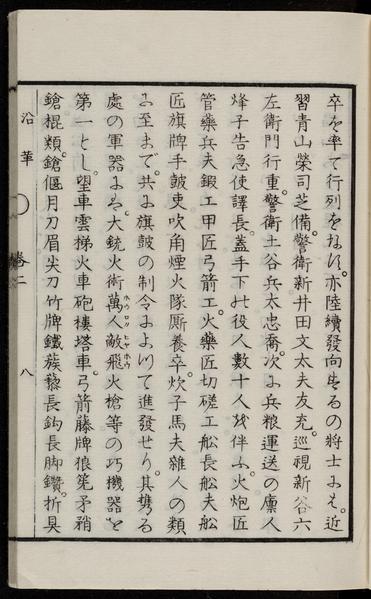 卒を率て行列をなす。亦陸續發向するの將士には。近
習青山榮司芝備。警衛新井田文太夫友充。巡視新谷六
左衛門行重。警衛土谷兵太忠喬。次に兵粮運送の廩人
烽子告急使譯長。蓋手下の役人數十人を伴ふ。火炮匠
管藥兵夫鍜工甲匠弓箭工。火藥匠切磋工舩長舩夫舩
匠旗牌手皷吏吹角煙火隊厮養卒。炊子馬夫雜人の類
に至まで。共に旗皷の制令によつて進發せり。其携る
處の軍器には。大銃火術萬人敵飛火槍等の巧機器を
ホウロク ヒヤ ホウ
第一とし。望車雲梯火車砲樓塔車。弓箭藤牌狼筅矛矟
鎗棍類。鎗偃月刀眉尖刀竹牌鐵蒺藜長鈎長脚鑽。折具
沿革 卷二 八